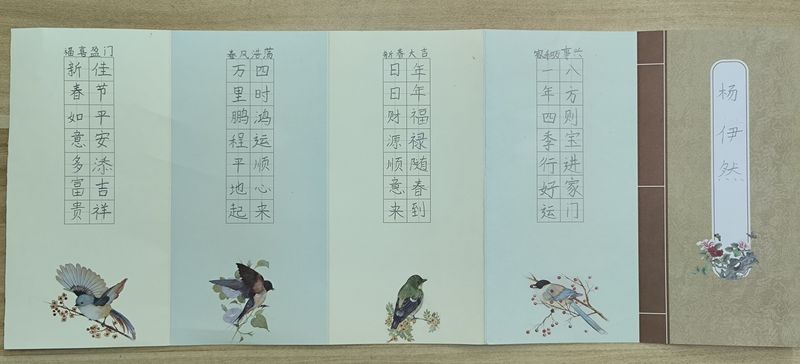 杨伊然
家和万事兴
八方则宝进家门
一年四季行好运
新春大吉
年年福禄随春到
日日财源顺意来
春风浩荡
四时鸿运顺心来
万里鹏程平地起
福喜盈门
佳节平安添吉祥
新春如意多富贵